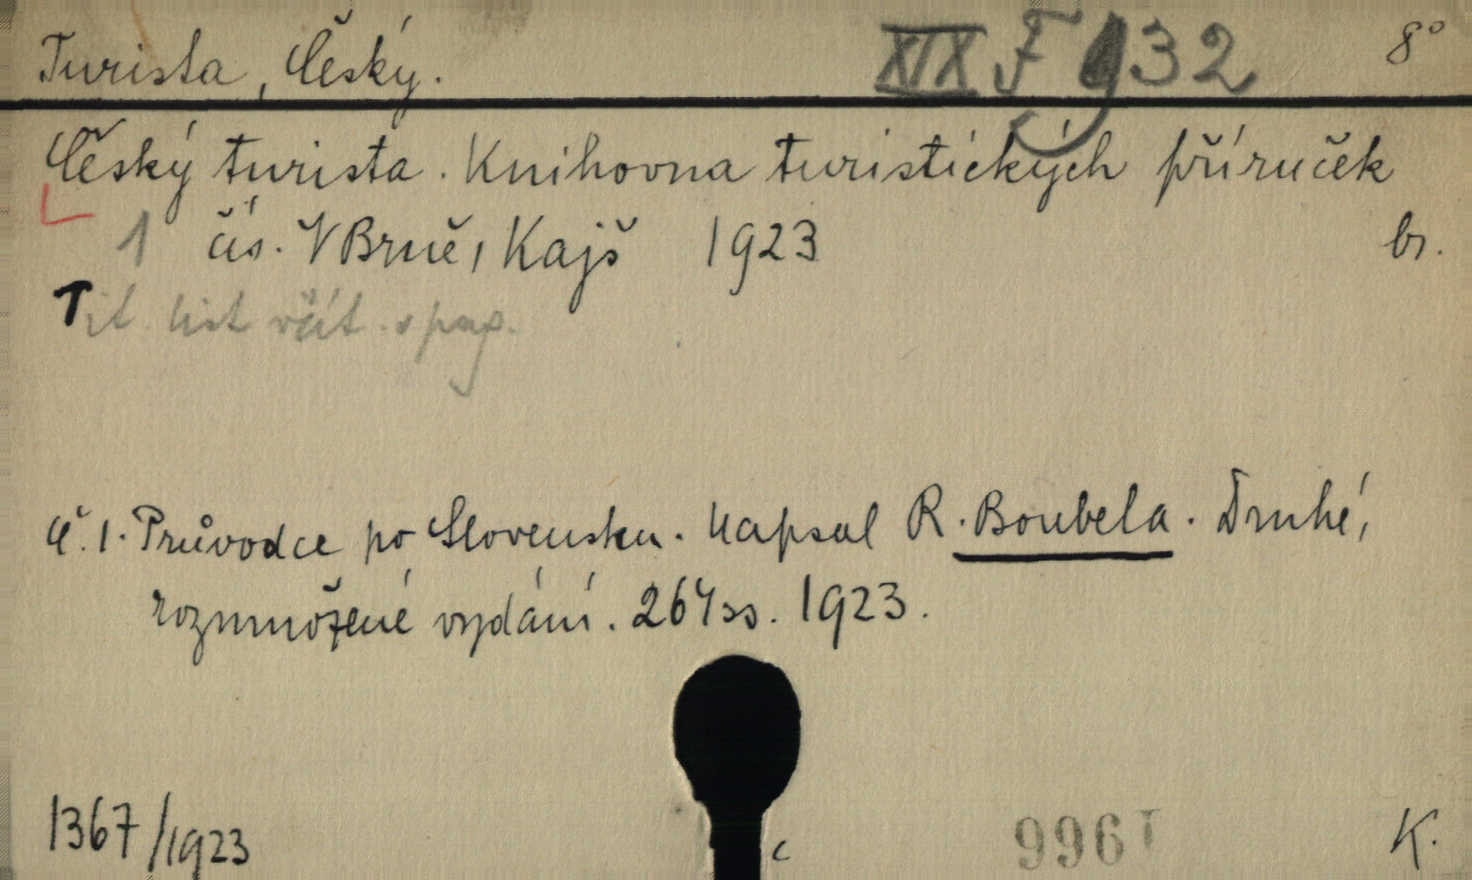 Turista, Český. XIX F 932 8°
Český turista. Knihovna turistických příruček
1 čís. V Brně, Kajš 1923 br.
Tit. list včít. v pag.
Č. 1. Průvodce po Slovensku. Napsal R. Boubela. Druhé,
rozmnožené vydání. 264 ss. 1923.
1367/1923 K.